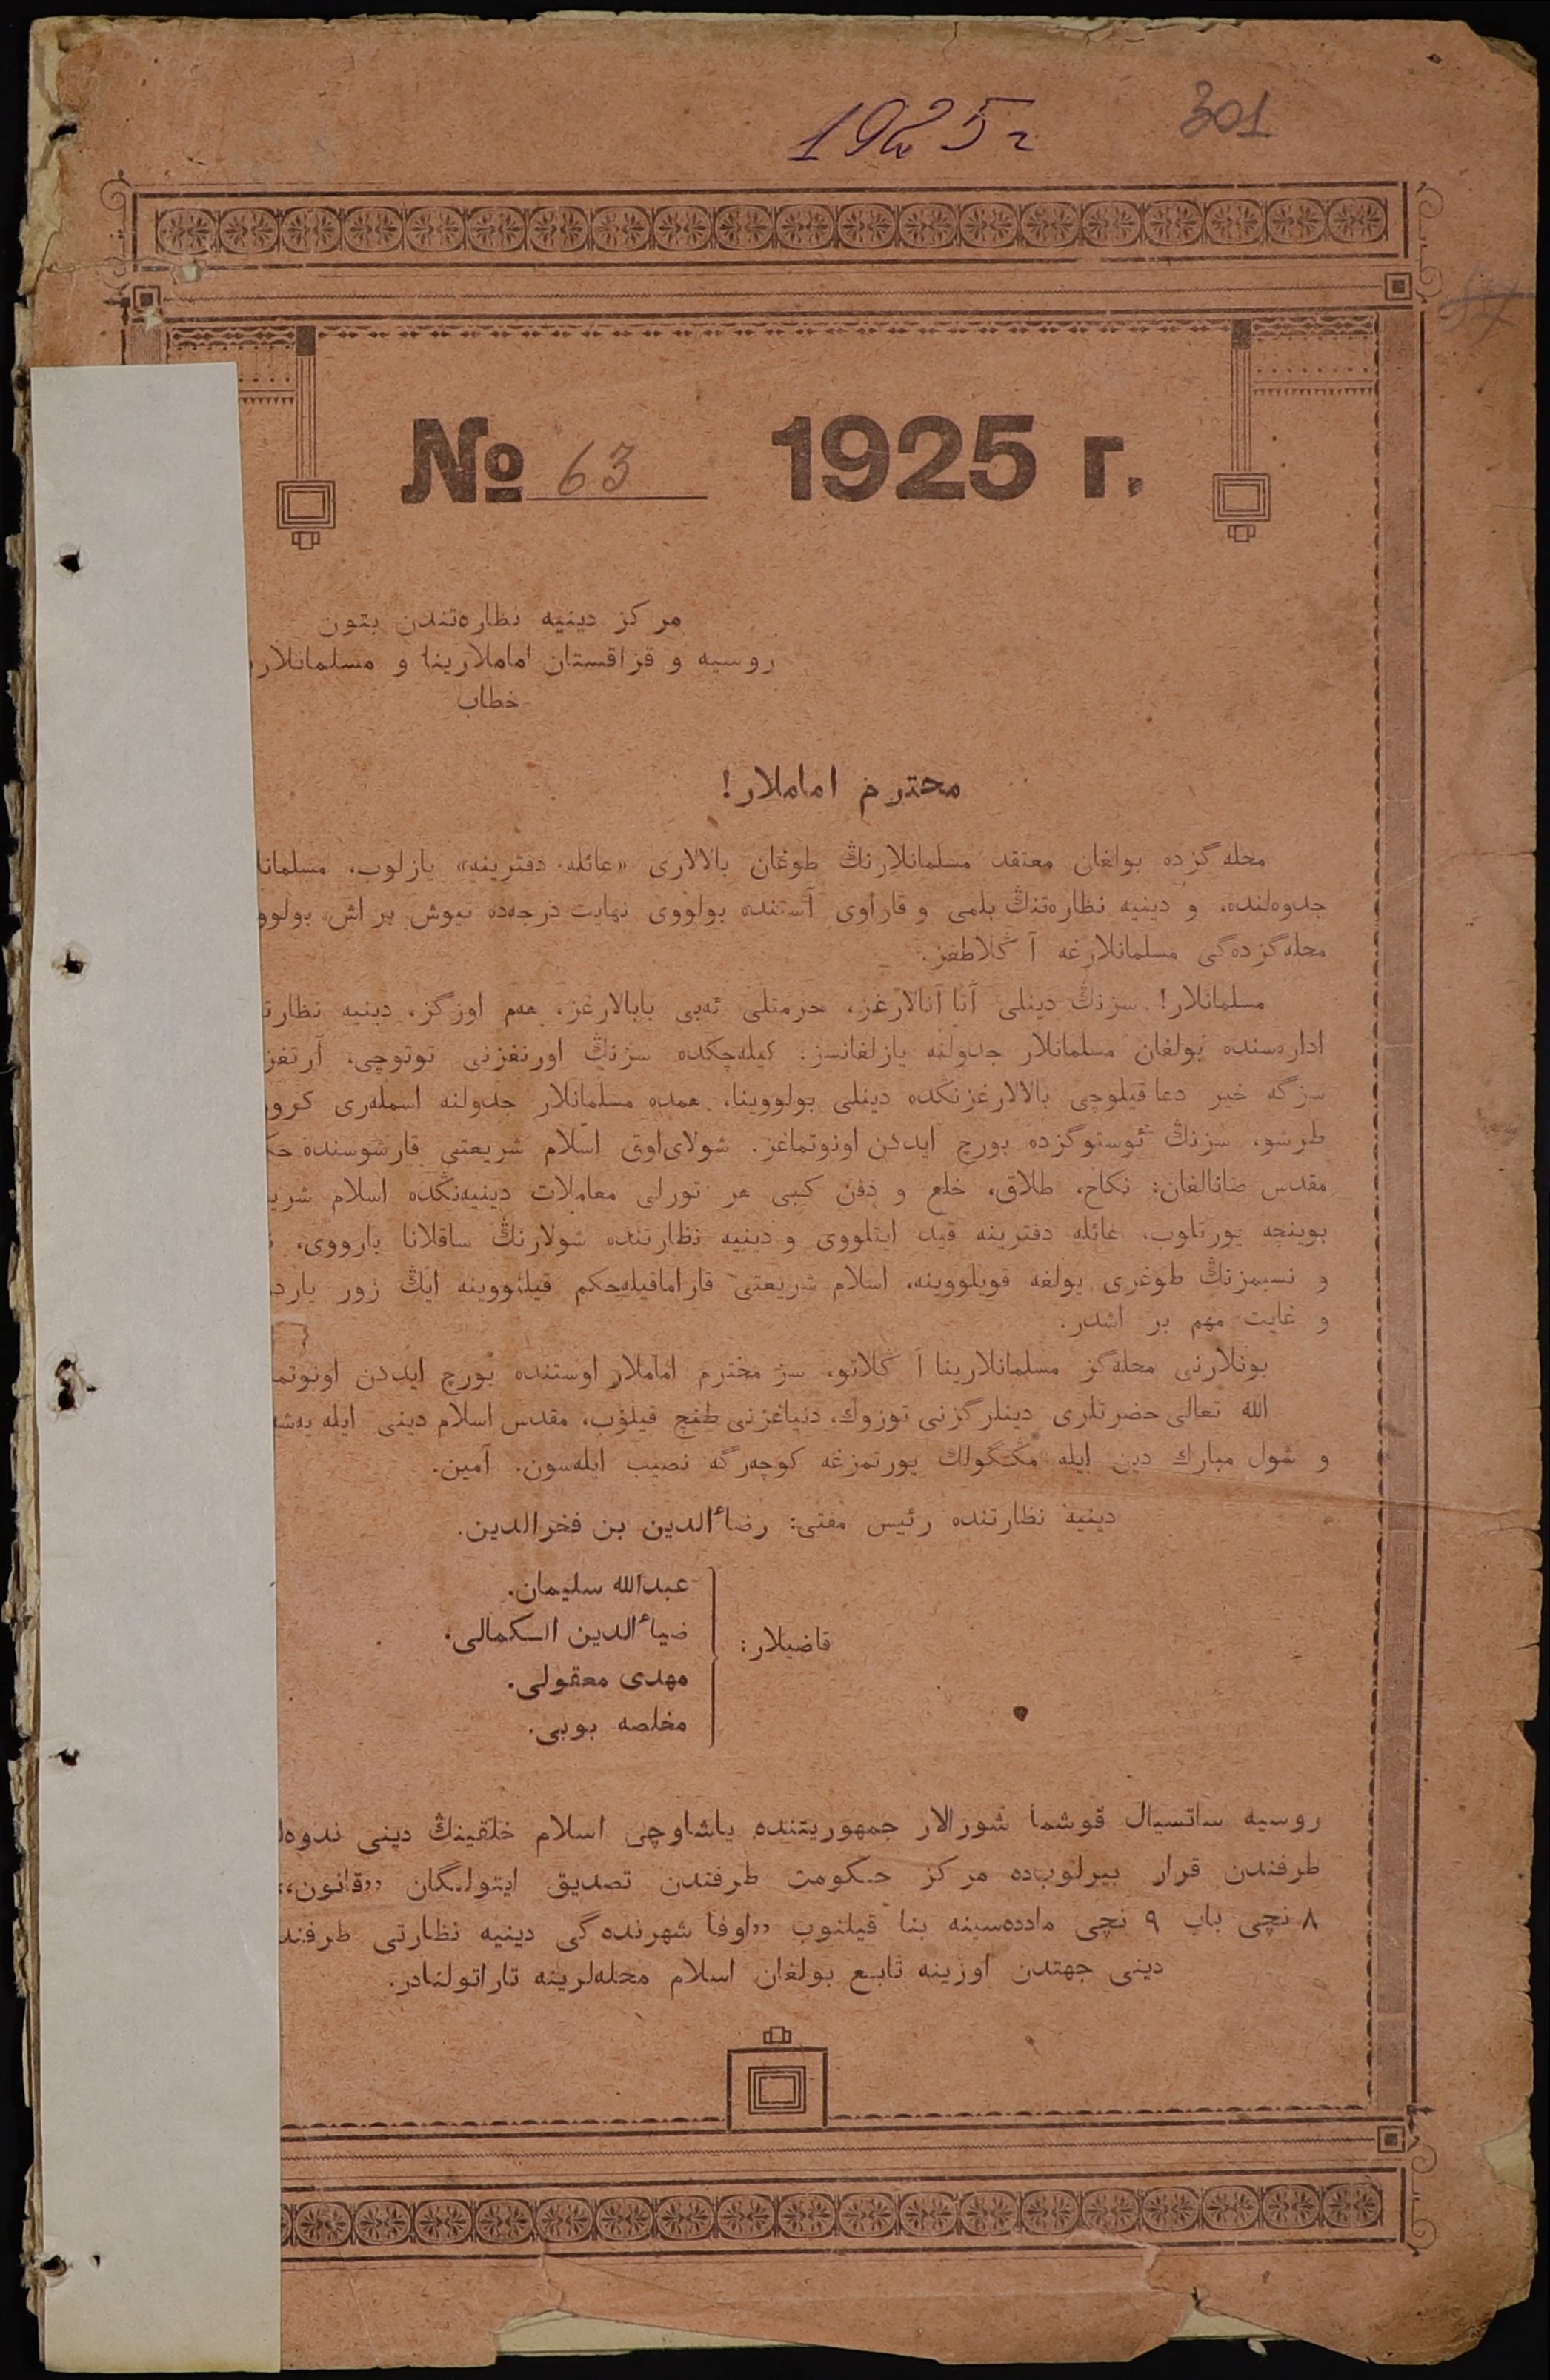 1925 г
301
№ 63 1925 г.
مركز دينيه نظاره‌تندن بتون
روسيه و قزاقستان اماملارينا و مسلمانلار
خطاب
محترم اماملار!
محله‌گزده بولغان معتقد مسلمانلارنڭ طوغان بالالارى «عائله دفترينه» يازلوب، مسلمانلا
جدوه‌لنده، و دينيه نظاره‌تنڭ بلمى و قاراوى آستنده بولووى نهايت درجه‌ده تيوش بر اش بولوو
محله‌گزده‌گى مسلمانلارغه آڭلاطغز.
مسلمانلار! سزنڭ دينلى آتا آنالارغز، حرمتلى ئه‌بى بابالارغز، هم اوزگز، دينيه نظارت
اداره‌سنده بولغان مسلمانلار جدولنه يازلغانسز؛ كيله‌چكده سزنڭ اورنغزنى توتوچى، آرتغز
سزگه خير دعا قيلوچى بالالارغزنڭده دينلى بولووينا، همده مسلمانلار جدولنه اسمله‌رى كرو
طرشو، سزنڭ ئوستوگزده بورچ ايدكن اونوتماغز. شولاى‌اوق اسلام شريعتى قارشوسنده حك
مقدس صانالغان: نكاح، طلاق، خلع و دفن كبى هر تورلى معاملات دينيه‌نڭده اسلام شري
بوينچه يورتلوب، عائله دفترينه قيد ايتلووى و دينيه نظارتنده شولارنڭ ساقلانا بارووى،
و نسبمزنڭ طوغرى يولغه قويلووينه، اسلام شريعتى قاراماقيله‌حكم قيلنووينه ايڭ زور يارد
و غايت مهم بر اشدر.
بونلارنى محله‌گز مسلمانلارينا آڭلاتو، سز محترم اماملار اوستنده بورچ ايدكن اونوتم
الله تعالى حضرتلرى دينلرگزنى توزوك، دنياغزنى طنچ قيلوب، مقدس اسلام دينى ايله يه‌ش
و شول مبارك دين ايله مڭگولك يورتمزغه كوچه‌رگه نصيب ايله‌سون. آمين.
دينيه نظارتنده رئيس مفتى: رضاءالدين بن فخرالدين.
قاضيلار:
عبدالله سليمان.
ضياءالدين الكمالى.
مهدى معقولى.
مخلصه بوبى.
روسيه ساتسيال قوشما شورالار جمهوريتنده ياشاوچى اسلام خلقينڭ دينى ندوه‌
طرفندن قرار بيرلوب‌ده مركز حكومت طرفندن تصديق ايتولگان „قانون“
٨ نچى باب ٩ نچى مادده‌سينه بنا قيلنوب „اوفا شهرنده‌گى دينيه نظارتى طرفند
دينى جهتدن اوزينه تابع بولغان اسلام محله‌لرينه تاراتولنادر.